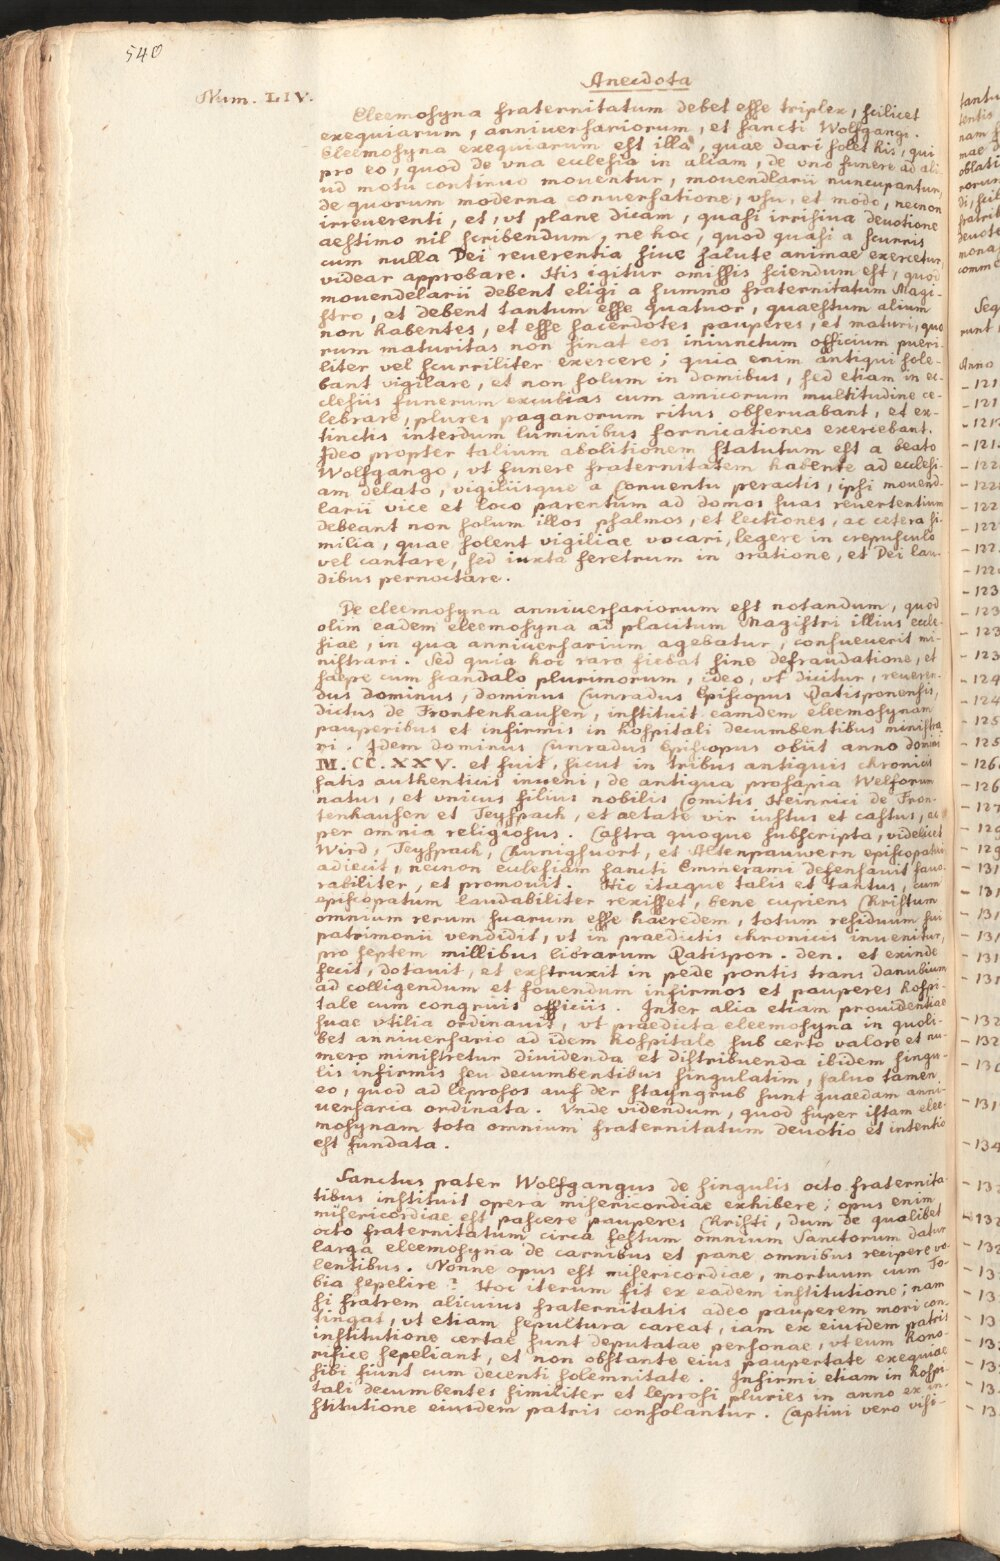 540
Anecdota
Num. LIV.
Eleemosyna fraternitatum debet esse triplex, scilicet
exequiarum, anniuersariorum, et sancti Wolfgangi.
Eleemosyna exequiarum est illa, quae dari solet his, qui
pro eo, quod de vna ecclesia in aliam, de vno funere ad ali-
ud motu continuo mouentur, mouendlarii nuncupantur,
de quorum moderna conuersatione, vsu, et modo, necnon
irreuerenti, et, vt plane dicam, quasi irrisiua deuotione
aestimo nil scribendum, ne hoc, quod quasi a scurris
cum nulla Dei reuerentia siue salute animae exercetur,
videar approbare. His igitur omissis sciendum est, quod
mouendelarii debent eligi a summo fraternitatum Magi-
stro, et debent tantum esse quatuor, quaestum alium
non habentes, et esse sacerdotes pauperes, et maturi, quo
rum maturitas non sinat eos iniunctum officium pueri-
liter vel scurriliter exercere; quia enim antiqui sole-
bant vigilare, et non solum in domibus, sed etiam in ec-
clesiis funerum excubias cum amicorum multitudine ce-
lebrare, plures paganorum ritus obseruabant, et ex-
tinctis interdum luminibus fornicationes exercebant.
Ideo propter talium abolitionem statutum est a beato
Wolfgango, vt funere fraternitatem habente ad ecclesi-
am delato, vigiliisque a Conuentu peractis, ipsi mouend-
larii vice et loco parentum ad domos suas reuertentium
debeant non solum illos psalmos, et lectiones, ac cetera si-
milia, quae solent vigiliae vocari, legere in crepusculo
vel cantare, sed iuxta feretrum in oratione, et Dei lau-
dibus pernoctare.
De eleemosyna anniuersariorum est notandum, quod
olim eadem eleemosyna ad placitum Magistri illius eccle-
siae, in qua anniuersarium agebatur, consueuerit mi-
nistrari. Sed quia hoc raro fiebat sine defraudatione, et
saepe cum scandalo plurimorum, ideo, vt dicitur, reueren-
dus dominus, dominus Cunradus Episcopus Ratisponensis,
dictus de Frontenhausen, instituit eamdem eleemosynam
pauperibus et infirmis in hospitali decumbentibus ministra
ri. Idem dominus Cunradus Episcopus obiit anno domini
M. CC. XXV. et fuit, sicut in tribus antiquis chronicis
satis authenticis inueni, de antiqua prosapia Welforum
natus, et vnicus filius nobilis Comitis Heinrici de Fron-
tenhausen et Teyspach, et aetate vir iustus et castus, ac
per omnia religiosus. Castra quoque subscripta, videlicet
Wird, Teyspach, Chunighuort, et Altenpauwern episcopatui
adiecit, necnon ecclesiam sancti Emmerami defensauit fauo-
rabiliter, et promouit. Hic itaque talis et tantus, cum
episcopatum laudabiliter rexisset, bene cupiens Christum
omnium rerum suarum esse haeredem, totum residuum sui
patrimonii vendidit, vt in praedictis chronicis inuenitur,
pro septem millibus librarum Ratispon. den. et exinde
fecit, dotauit, et exstruxit in pede pontis trans danubium
ad colligendum et fouendum infirmos et pauperes hospi-
tale cum congruis officiis. Inter alia etiam prouidentiae
suae vtilia ordinauit, vt praedicta eleemosyna in quoli-
bet anniuersario ad idem hospitale sub certo valore et nu-
mero ministretur diuidenda et distribuenda ibidem singu-
lis infirmis seu decumbentibus singulatim, saluo tamen
eo, quod ad leprosos auf der stayngrub sunt quaedam anni-
uersaria ordinata. Vnde videndum, quod super istam elee-
mosynam tota omnium fraternitatum deuotio et intentio
est fundata.
Sanctus pater Wolfgangus de singulis octo fraternita-
tibus instituit opera misericordiae exhibere; opus enim
misericordiae est pascere pauperes Christi, dum de qualibet
octo fraternitatum circa festum omnium Sanctorum datur
larga eleemosyna de carnibus et pane omnibus recipere vo-
lentibus. Nonne opus est misericordiae, mortuum cum To-
bia sepelire? Hoc iterum fit ex eadem institutione; nam
si fratrem alicuius fraternitatis adeo pauperem mori con-
tingat, vt etiam sepultura careat, iam ex eiusdem patris
institutione certae sunt deputatae personae, vt eum hono-
rifice sepeliant, et non obstante eius paupertate exequiae
sibi fiunt cum decenti solemnitate. Infirmi etiam in hospi-
tali decumbentes similiter et leprosi pluries in anno ex in-
stitutione eiusdem patris consolantur. Captiui vero visi-